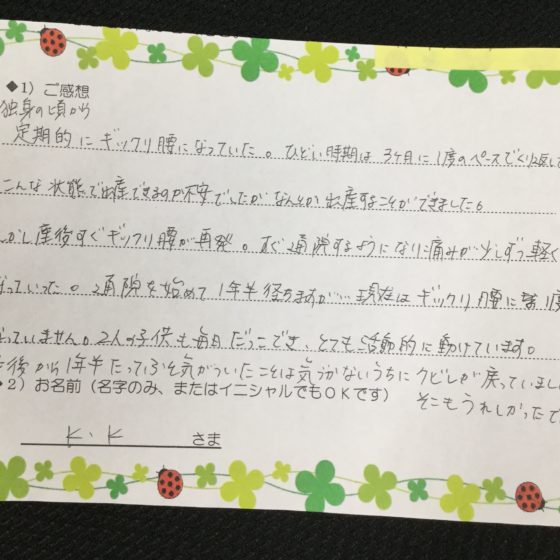 ◆1）ご感想
独身の頃から
定期的にギックリ腰になっていた。ひどい時期は3ヶ月に1度のペースでくり返し
こんな状態で出産できるのか不安でしたがなんとか出産することができました。
かし産後すぐギックリ腰が再発。すぐ通院するようになりに痛みが少しずつ軽く
なっていった。通院を始めて1年半経ちますが…現在はギックリ腰に 1度
なっていません。2人の子供も毎日だっこでき、とても活動的に動けています。
後から1年半たってふと気がついたことは気づかないうちにクビレが戻っていまし
◆2）お名前（名字のみ、またはイニシャルでもOKです）
そこもうれしかったで
K・K さま